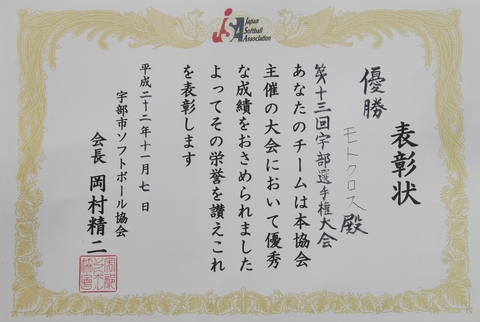 JSA Japan
Softball
Association
表彰状
優勝
モトクロス殿
第十三回宇部選手権大会
あなたのチームは本協会
主催の大会において優秀
な成績をおさめられました
よってその栄誉を讃えこれ
を表彰します
平成二十二年十一月七日
宇部市ソフトボール協会
会長 岡村精二